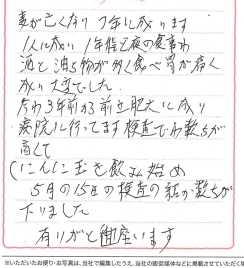 妻が亡くなり7年に成ります
1人に成り1年程は夜の食事わ
酒と油もの物が多く食べ胃が痛く
成り大変でした。
今わ3年前から前立肥大に成り
病院に行ってます検査でわ数ちが
高くて
にんにく玉を飲み始め
5月の15日の検査の結か数ちが
下りました
有りがと御座います
※いただいたお便り・お写真は、当社で編集したうえ、当社の販促媒体などに掲載させていただく場